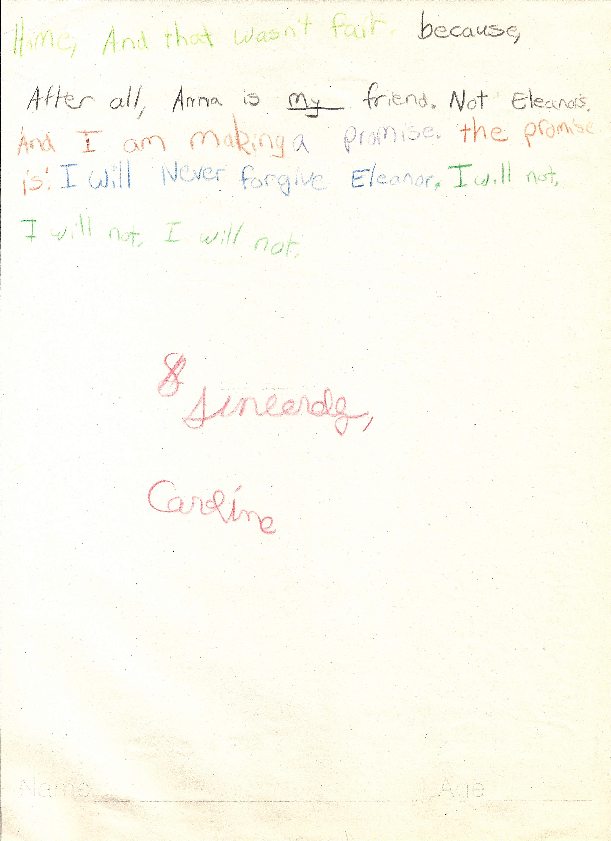 time, And that wasn't fair. because,
After all, Anna is my friend. Not Eleanor's.
And I am making a promise. the promise
is: I will Never forgive Eleanor. I will not,
I will not, I will not.
Sincerely,
Caroline
Name Age